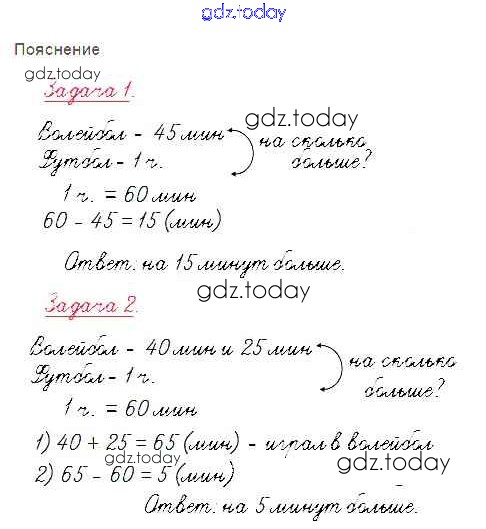 gdz.today
Пояснение
gdz.today
Задача 1.
gdz.today
Волейбол - 45 мин
на сколько
Футбол - 1 ч.
больше?
1 ч. = 60 мин
60 - 45 = 15 (мин)
Ответ: на 15 минут больше.
gdz.today
Задача 2.
Волейбол - 40 мин и 25 мин
на сколько
Футбол - 1 ч.
больше?
1 ч. = 60 мин
1) 40 + 25 = 65 (мин) - играл в волейбол
gdz.today
gdz.today
2) 65 - 60 = 5 (мин)
Ответ: на 5 минут больше.